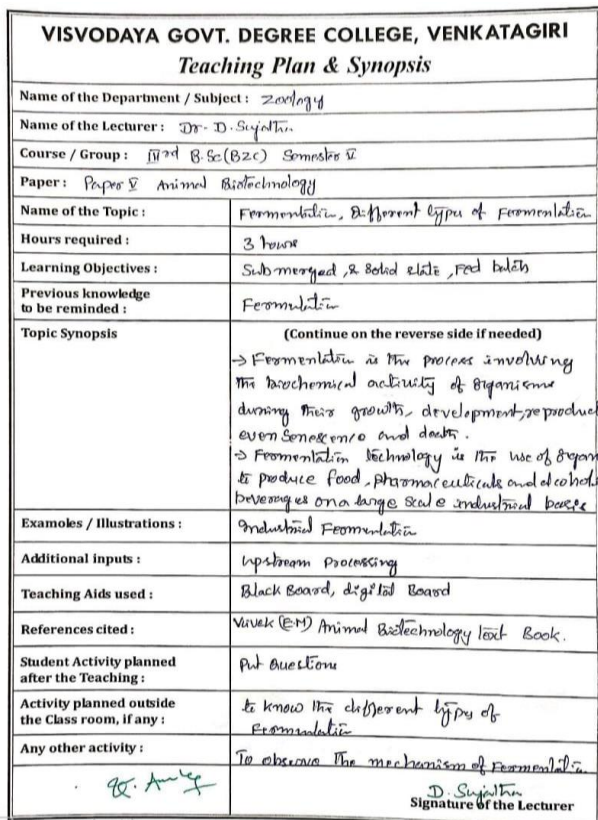 VISVODAYA GOVT. DEGREE COLLEGE, VENKATAGIRI
Teaching Plan & Synopsis
Name of the Department / Subject : Zoology
Name of the Lecturer : Dr. D. Sujatha
Course / Group : IIIrd B.Sc (BZC) Semester V
Paper : Paper V Animal Biotechnology
Name of the Topic : Fermentation, Different types of Fermentation
Hours required : 3 hours
Learning Objectives : Submerged, & Solid state, Fed batch
Previous knowledge
to be reminded : Fermentation
Topic Synopsis (Continue on the reverse side if needed)
→ Fermentation is the process involving
the biochemical activity of organisms
during their growth, development, reproduct
even senescence and death.
→ Fermentation technology is the use of organ
to produce food, pharmaceuticals and alcohol
beverages on a large scale industrial basis
Examoles / Illustrations : Industrial Fermentation
Additional inputs : Upstream Processing
Teaching Aids used : Black Board, digital Board
References cited : Vivek (EM) Animal Biotechnology text Book.
Student Activity planned
after the Teaching : Put Questions
Activity planned outside
the Class room, if any : to know the different types of
Fermentation
Any other activity : To observe the mechanism of Fermentation
D. Sujatha
Signature of the Lecturer